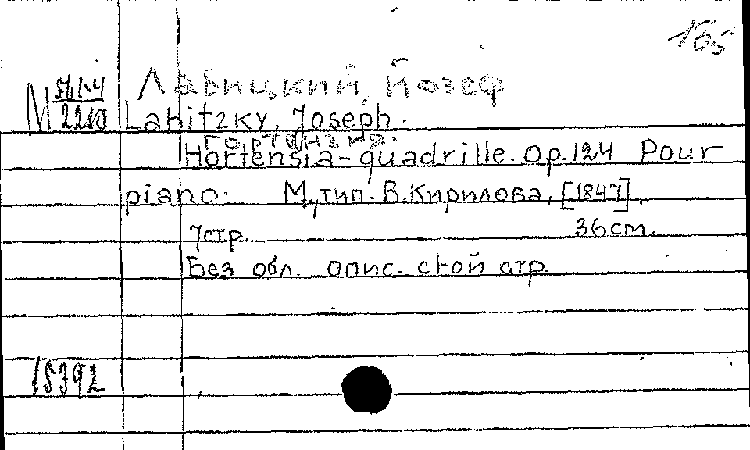 165
Лабицкий, Йозеф
М 2210
Labitzky, Joseph.
Гортензия.
Hortensia-quadrille. Op. 124 Pour
piano. М., тип. В. Кирилова, [1847].
7 стр. 36 см.
Без обл. опис. с 1-ой стр.
18392